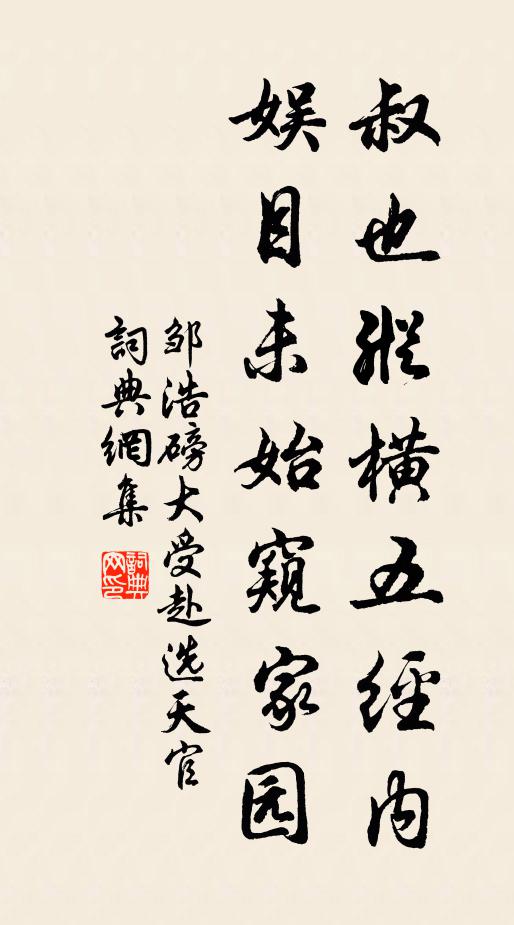 叔也縱橫五經内
娱目未始窺家园
邹浩磅大受赴选天官
詞典網集
詞典网印